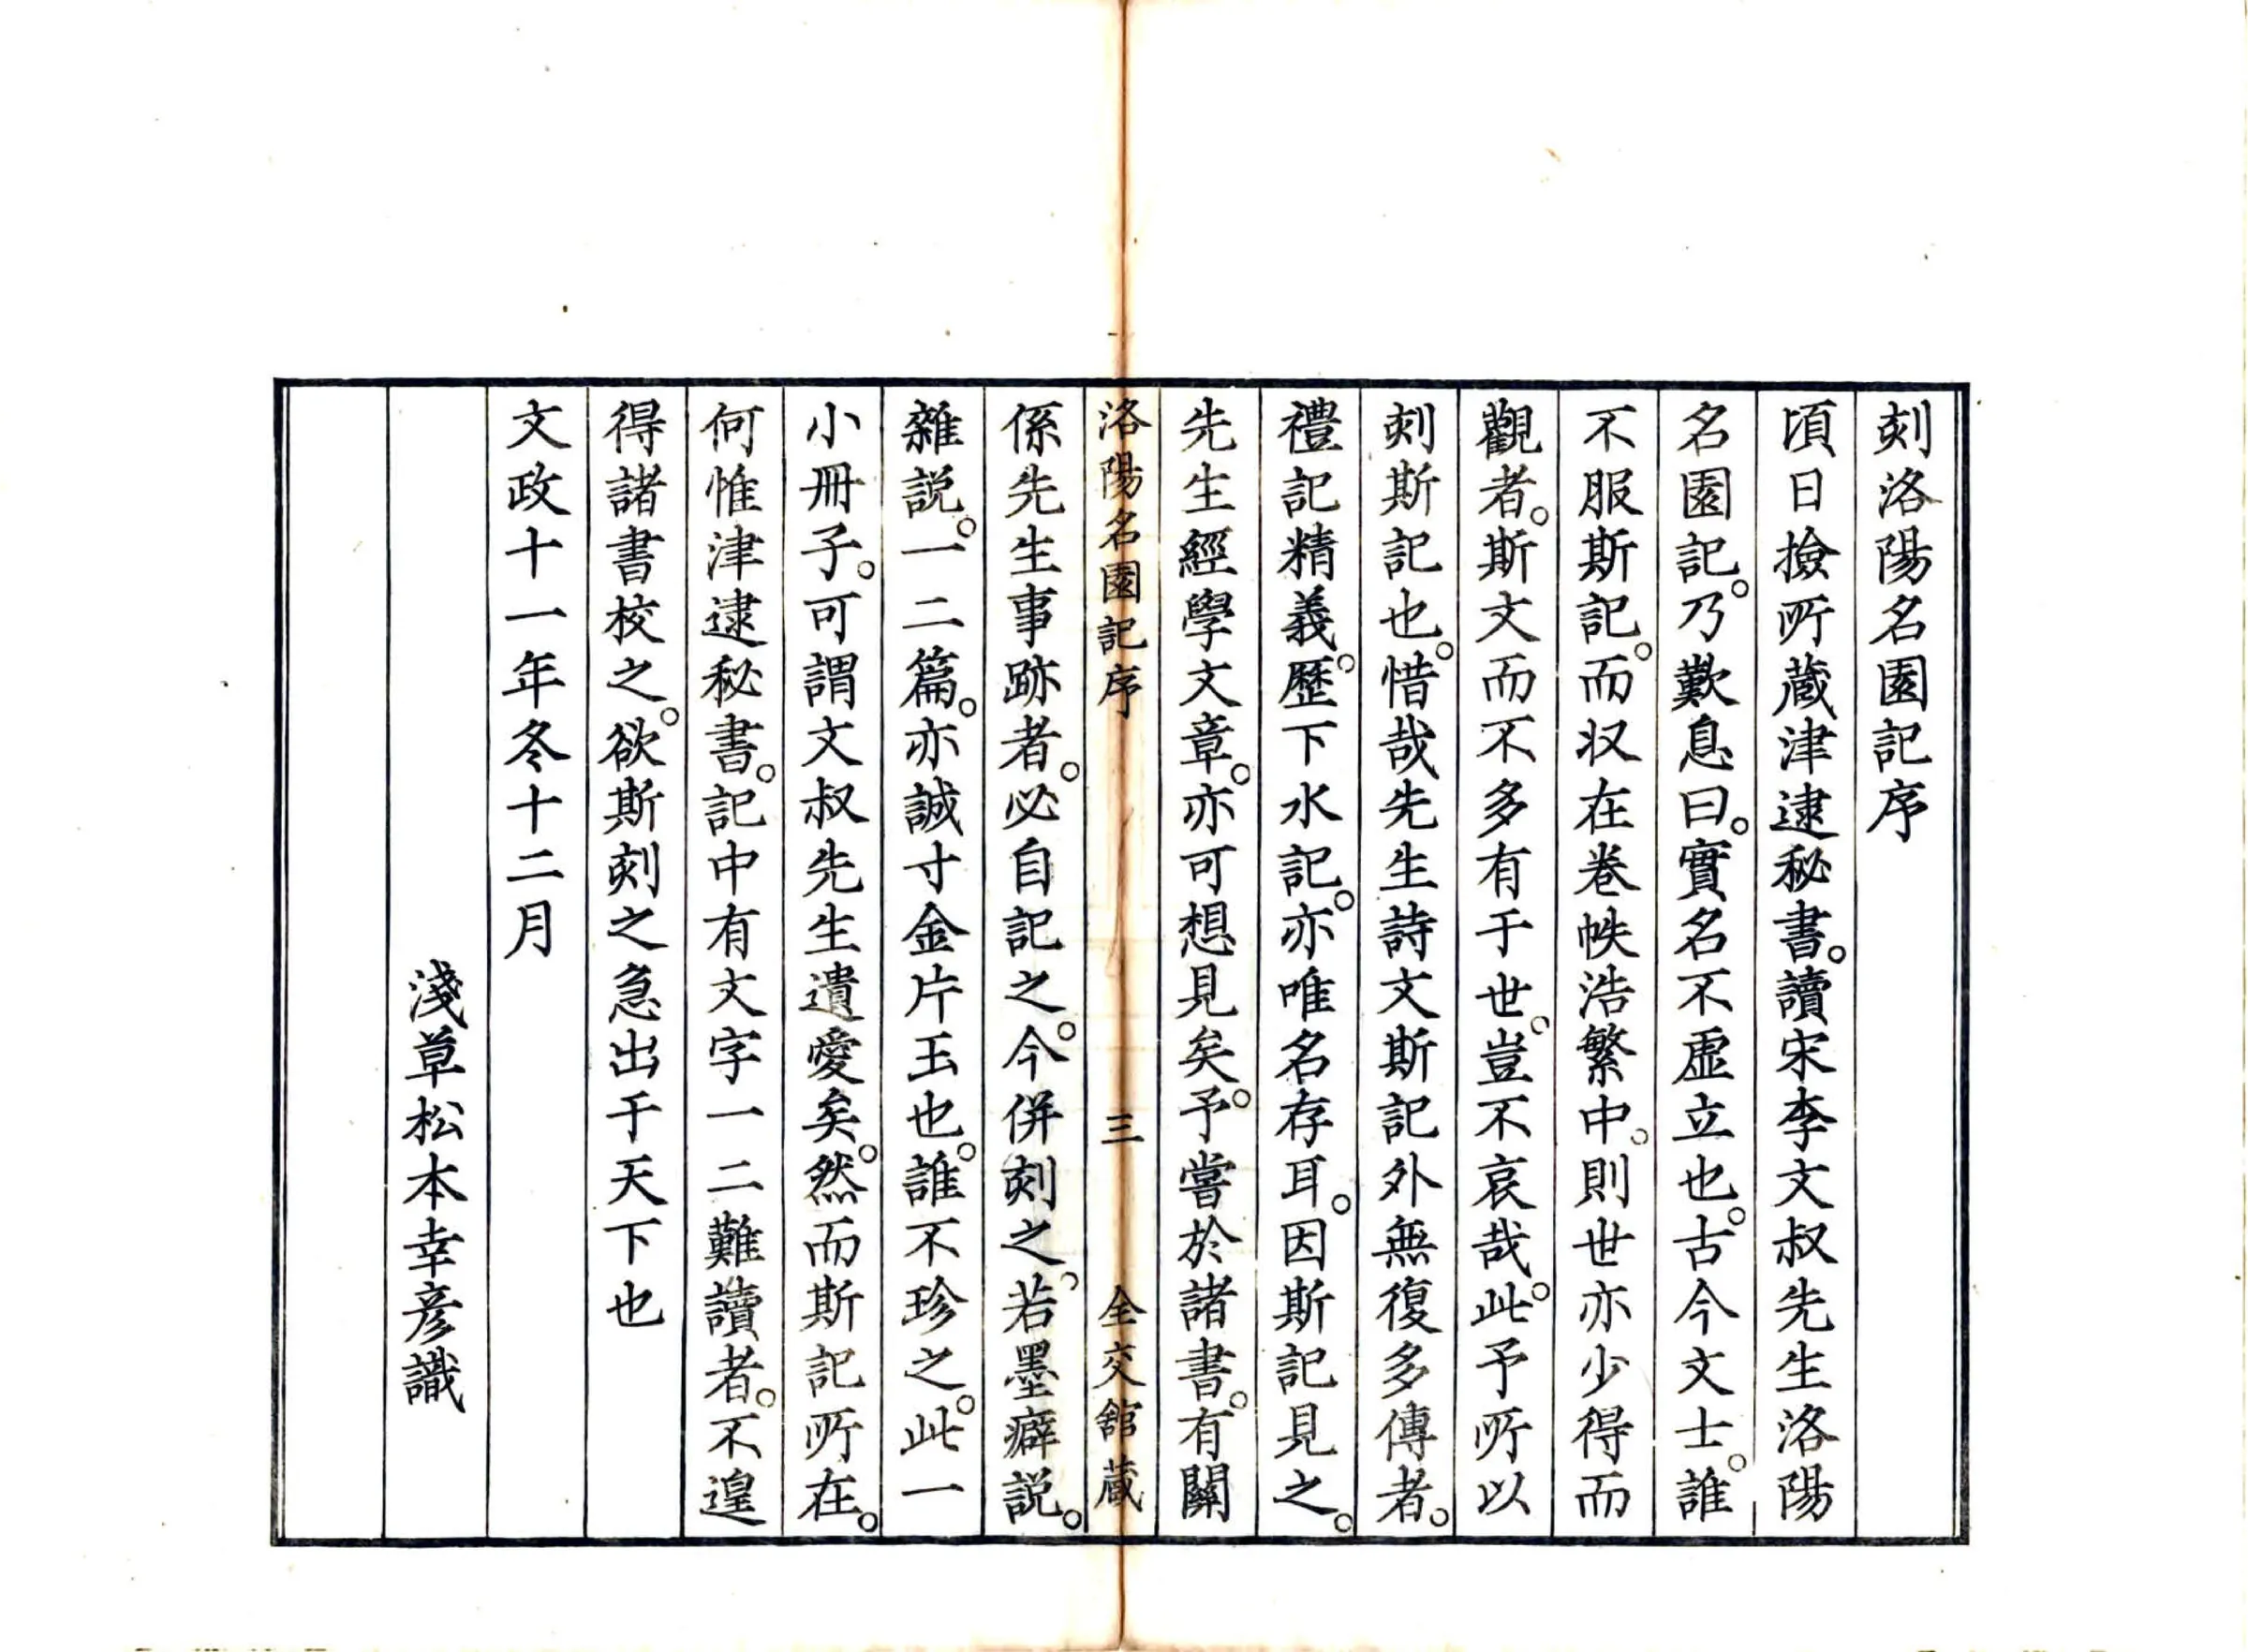 刻洛陽名園記序
頃日撿所蔵津逮秘書。讀宋李文叔先生洛陽
名園記。乃歎息曰。實名不虛立也。古今文士。誰
不服斯記。而収在卷帙浩繁中。則世亦少得而
觀者。斯文而不多有于世。豈不哀哉。此予所以
刻斯記也。惜哉先生詩文斯記外無復多傳者。
禮記精義。歷下水記。亦唯名存耳。因斯記見之。
先生經學文章。亦可想見矣。予嘗於諸書。有關
洛陽名園記序 三 全交舘蔵
係先生事跡者。必自記之。今併刻之。若墨癖説。
雜説。一二篇。亦誠寸金片玉也。誰不珍之。此一
小冊子。可謂文叔先生遺愛矣。然而斯記所在。
何惟津逮秘書。記中有文字一二難讀者。不遑
得諸書校之。欲斯刻之急出于天下也
文政十一年冬十二月
淺草松本幸彦識